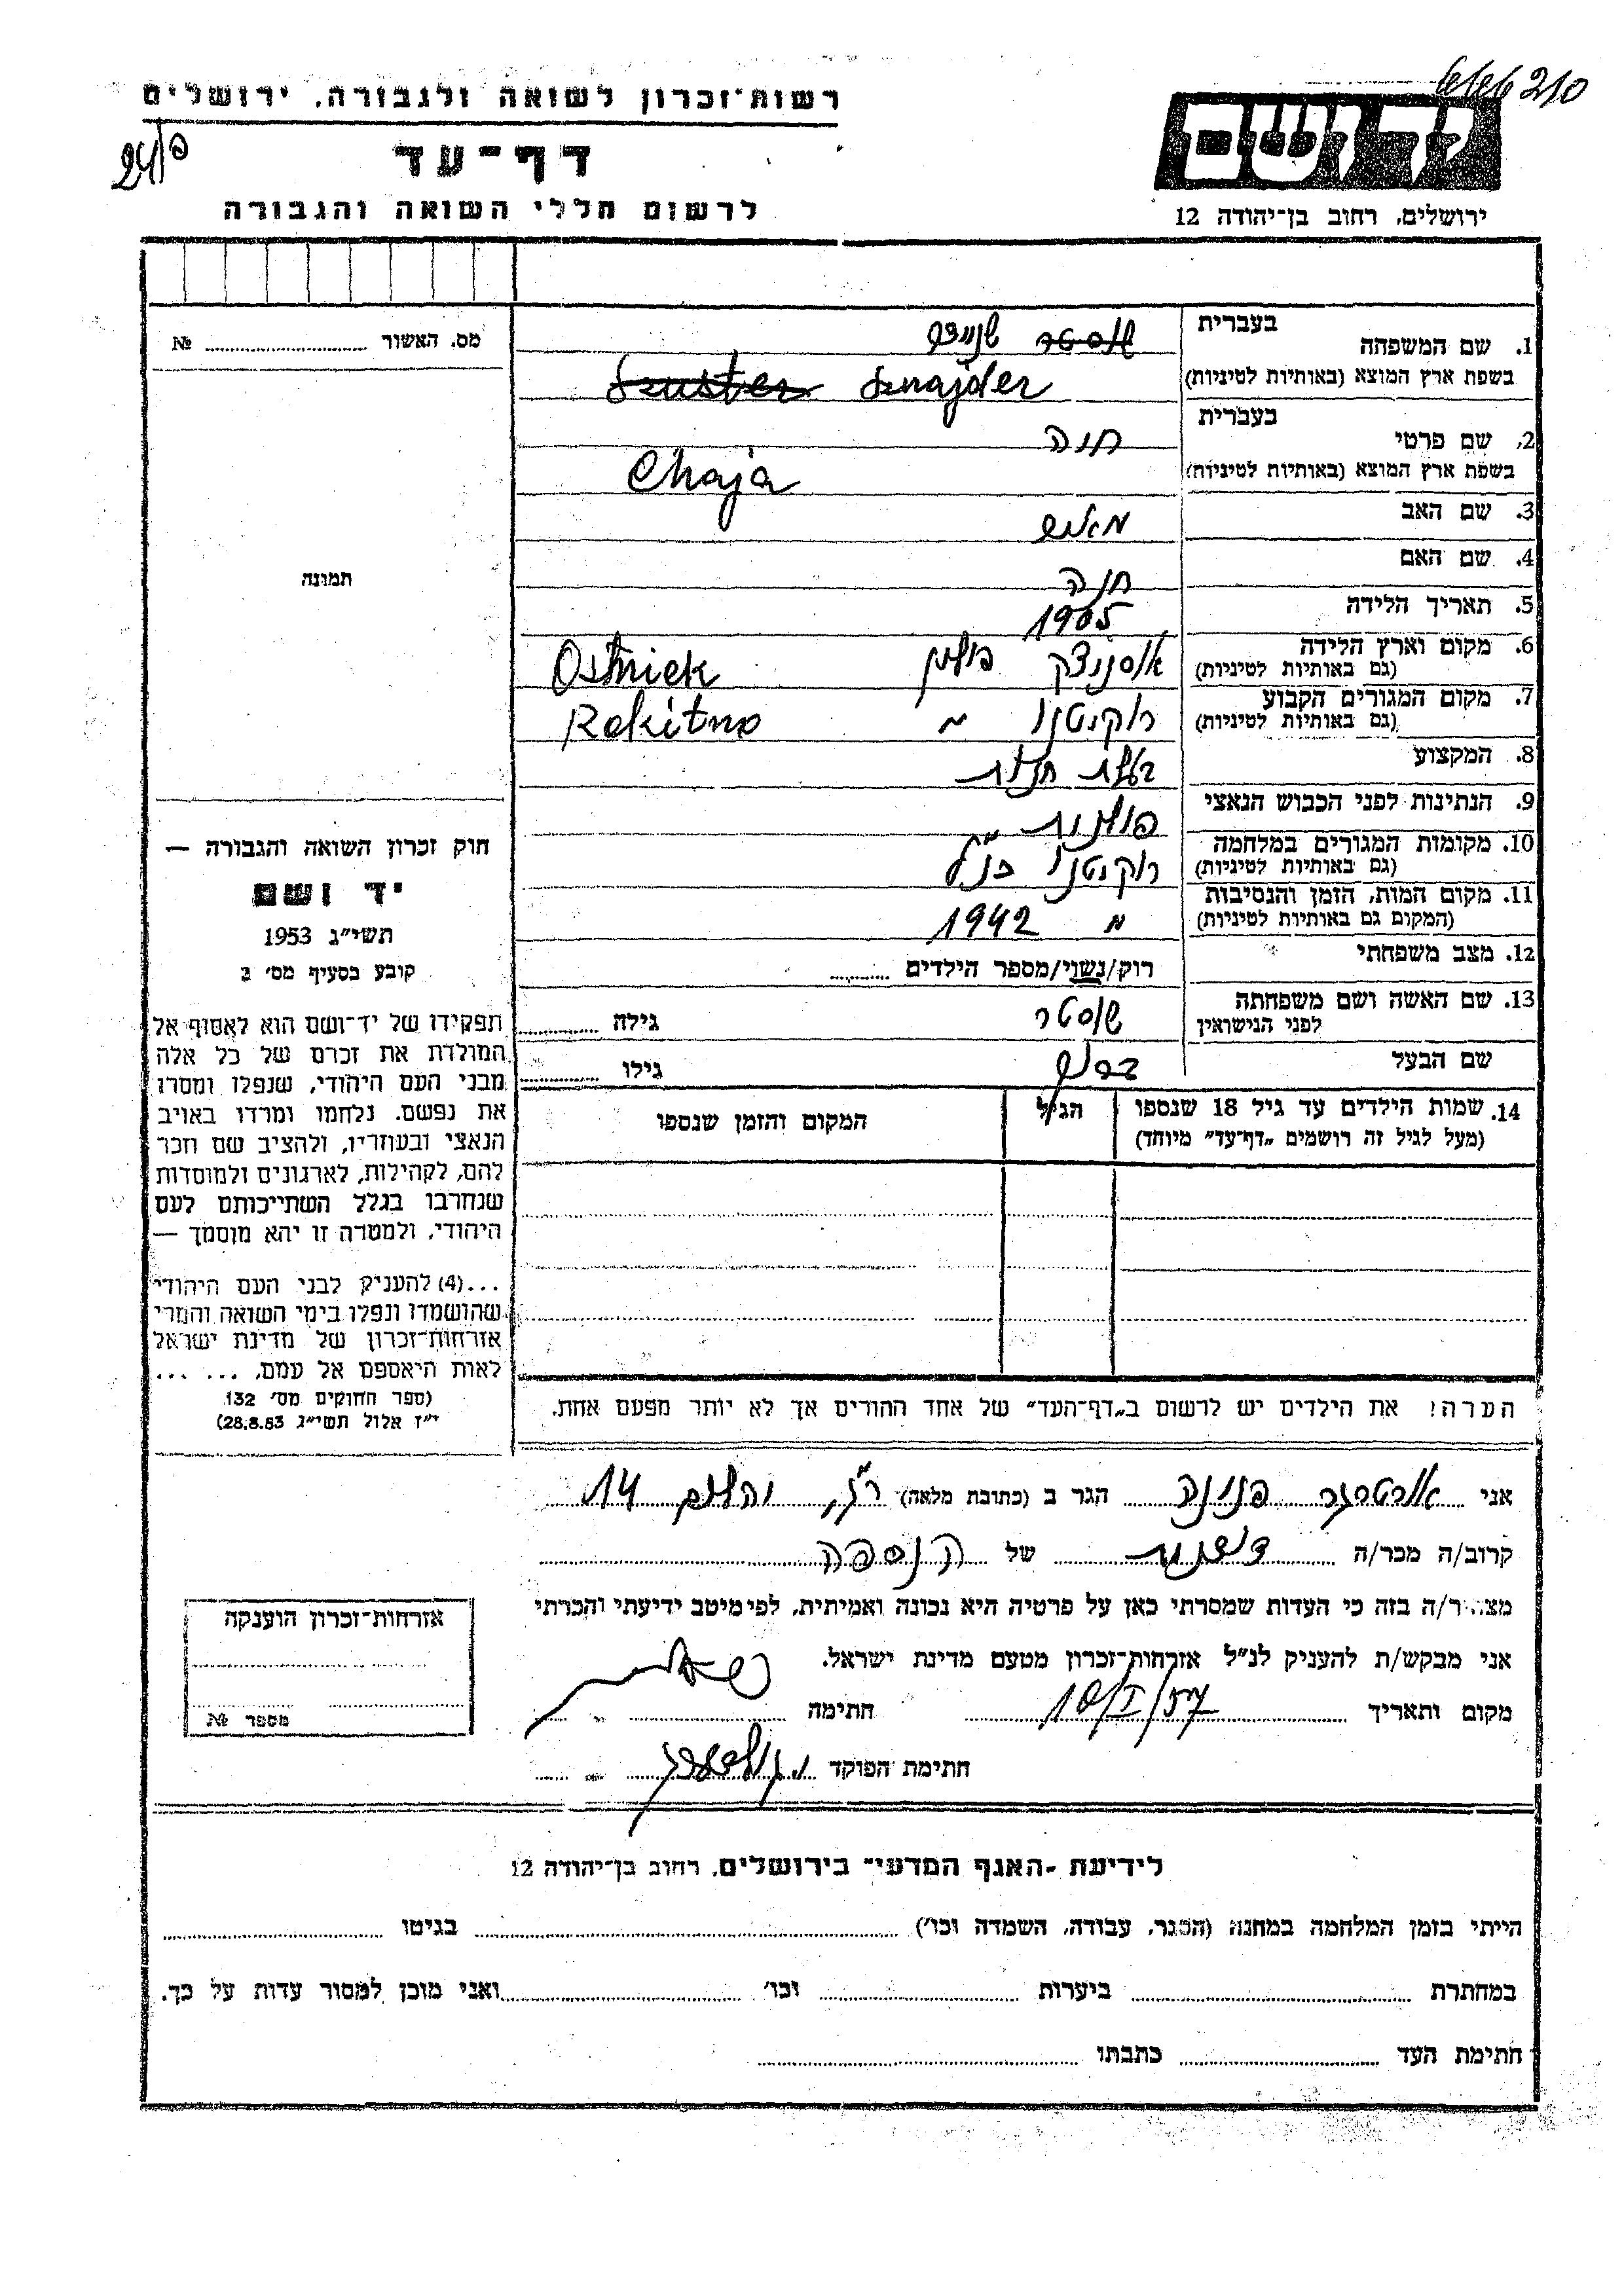 רשות־זכרון לשואה ולגבורה, ירושלים
דף־עד
לרשום חללי השואה והגבורה
210
יד ושם
ירושלים, רחוב בן־יהודה 12
1. שם המשפחה
בעברית
שוסטר שניידר
בשפת ארץ המוצא (באותיות לטיניות)
Szuster Sznajder
2. שם פרטי
בעברית
חיה
בשפת ארץ המוצא (באותיות לטיניות)
Chaja
3. שם האב
4. שם האם
חנה
5. תאריך הלידה
1905
6. מקום וארץ הלידה
(גם באותיות לטיניות)
אוסניצק פולין Ostniek
7. מקום המגורים הקבוע
(גם באותיות לטיניות)
רוקיטנו " Rokitno
8. המקצוע
בעלת חנות
9. הנתינות לפני הכבוש הנאצי
פולנית
10. מקומות המגורים במלחמה
(גם באותיות לטיניות)
רוקיטנו כנ"ל
11. מקום המות, הזמן והנסיבות
(המקום גם באותיות לטיניות)
" 1942
12. מצב משפחתי
רוק/נשוי/מספר הילדים
13. שם האשה ושם משפחתה
לפני הנישואין
שוסטר
גילה
שם הבעל
גילו
14. שמות הילדים עד גיל 18 שנספו
(מעל לגיל זה רושמים „דף־עד” מיוחד)
הגיל
המקום והזמן שנספו
הערה! את הילדים יש לרשום ב„דף־העד” של אחד ההורים אך לא יותר מפעם אחת.
מס. האשור №
תמונה
חוק זכרון השואה והגבורה —
יד ושם
תשי״ג 1953
קובע בסעיף מס׳ 2
תפקידו של יד־ושם הוא לאסוף אל
המולדת את זכרם של כל אלה
מבני העם היהודי, שנפלו ומסרו
את נפשם. נלחמו ומרדו באויב
הנאצי ובעוזריו, ולהציב שם וזכר
להם, לקהילות, לארגונים ולמוסדות
שנחרבו בגלל השתייכותם לעם
היהודי, ולמטרה זו יהא מוסמך —
...(4) להעניק לבני העם היהודי
שהושמדו ונפלו בימי השואה והמרי
אזרחות־זכרון של מדינת ישראל
לאות היאספם אל עמם. ... ...
(ספר החוקים מס׳ 132
י״ז אלול תשי״ג 28.8.53)
אני פנינה הגר ב (כתובת מלאה) ר"ג, 14
קרוב/ה מכר/ה שכנות של הנספה
מצהיר/ה בזה כי העדות שמסרתי כאן על פרטיה היא נכונה ואמיתית, לפי מיטב ידיעתי והכרתי
אני מבקש/ת להעניק לנ״ל אזרחות־זכרון מטעם מדינת ישראל.
מקום ותאריך 10/I/57 חתימה
חתימת הפוקד
אזרחות־זכרון הוענקה
מספר №
לידיעת ״האגף המדעי״ בירושלים, רחוב בן־יהודה 12
הייתי בזמן המלחמה במחנה (הסגר, עבודה, השמדה וכו׳) בגיטו
במחתרת ביערות וכו׳ ואני מוכן למסור עדות על כך.
חתימת העד כתבתו